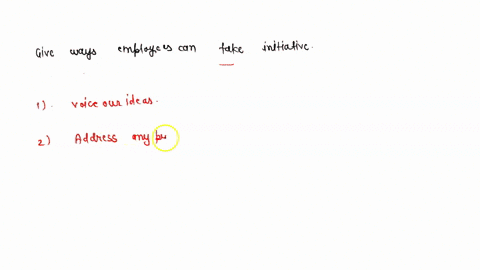 Give ways employees can take initiative.
1). voice our ideas.
2) Address any